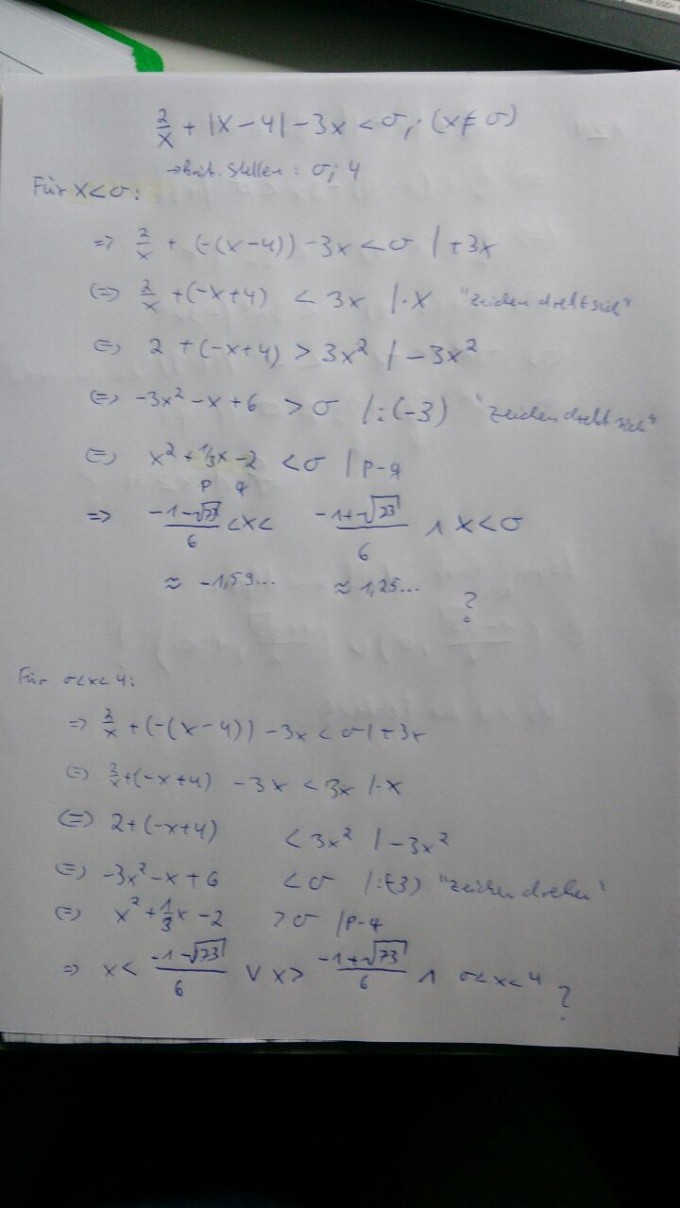 2/x + |x - 4| - 3x < 0; (x ≠ 0)
→ krit. Stellen: 0; 4
Für x < 0:
=> 2/x + (-(x-4)) - 3x < 0 | +3x
<=> 2/x + (-x+4) < 3x | ·x "Zeichen dreht sich"
<=> 2 + (-x+4) > 3x² | -3x²
<=> -3x² - x + 6 > 0 | :(-3) "Zeichen dreht sich"
<=> x² + 1/3x - 2 < 0 | p-q
p q
=> (-1-√73)/6 < x < (-1+√73)/6 ∧ x < 0
≈ -1,59... ≈ 1,25... ?
Für 0<x<4:
=> 2/x + (-(x-4)) - 3x < 0 | +3x
<=> 2/x + (-x+4) - 3x < 3x | ·x
<=> 2 + (-x+4) < 3x² | -3x²
<=> -3x² - x + 6 < 0 | :(-3) "Zeichen drehen"
<=> x² + 1/3x - 2 > 0 | p-q
=> x < (-1-√73)/6 ∨ x > (-1+√73)/6 ∧ 0<x<4 ?